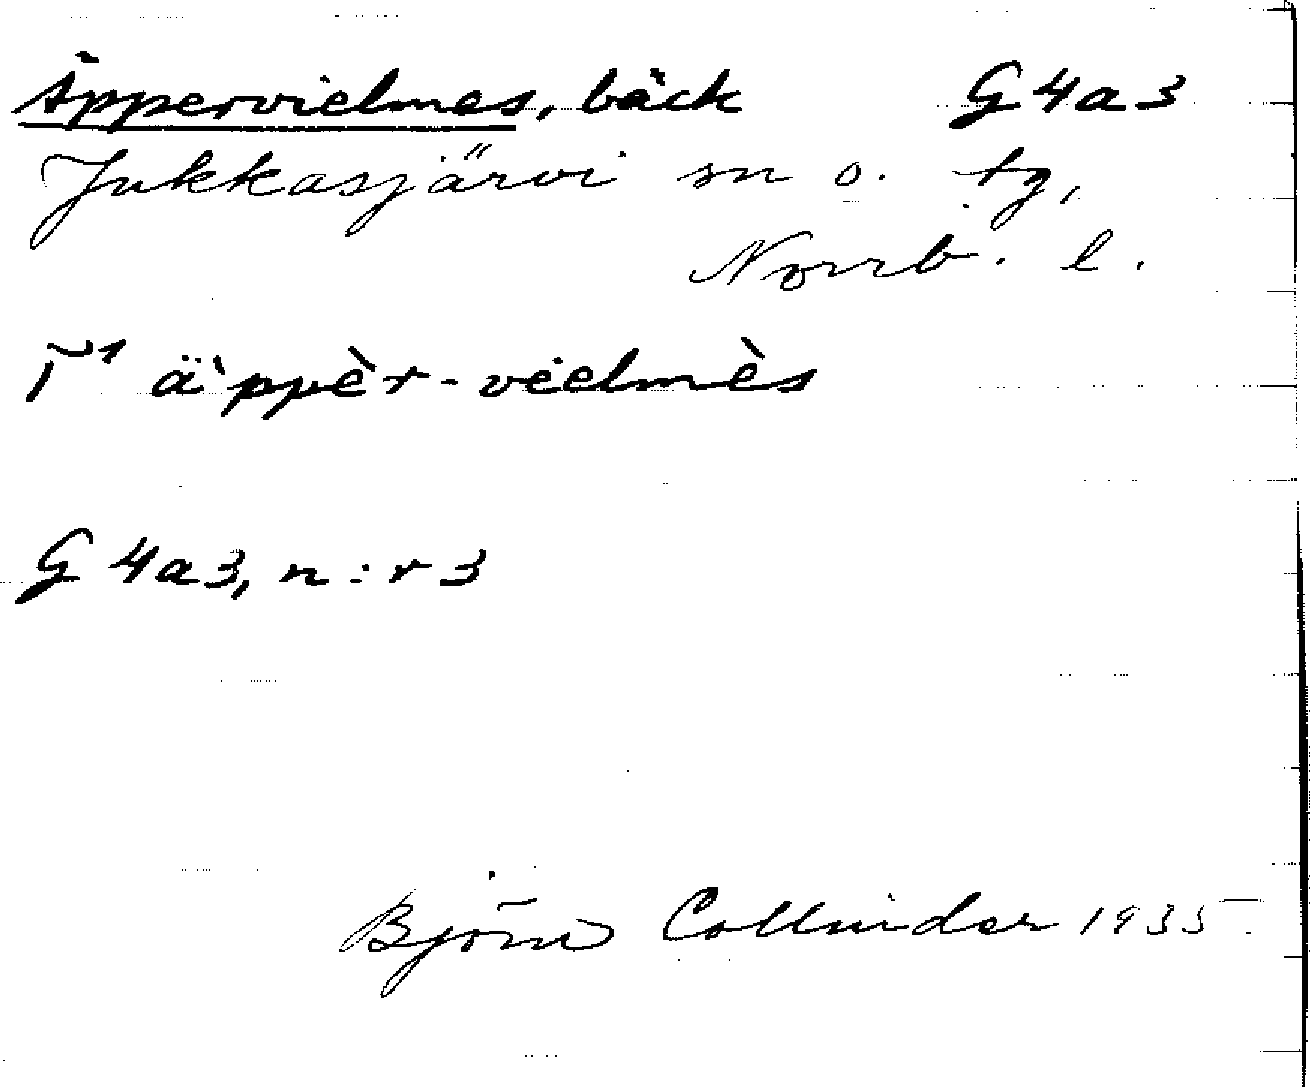 Äppervielmes, bäck G4a3
Jukkasjärvi sn o. tg,
Norrb. l.
ä`ppèr-vielmès
G 4a3, n:r 3
Björn Collinder 1935.